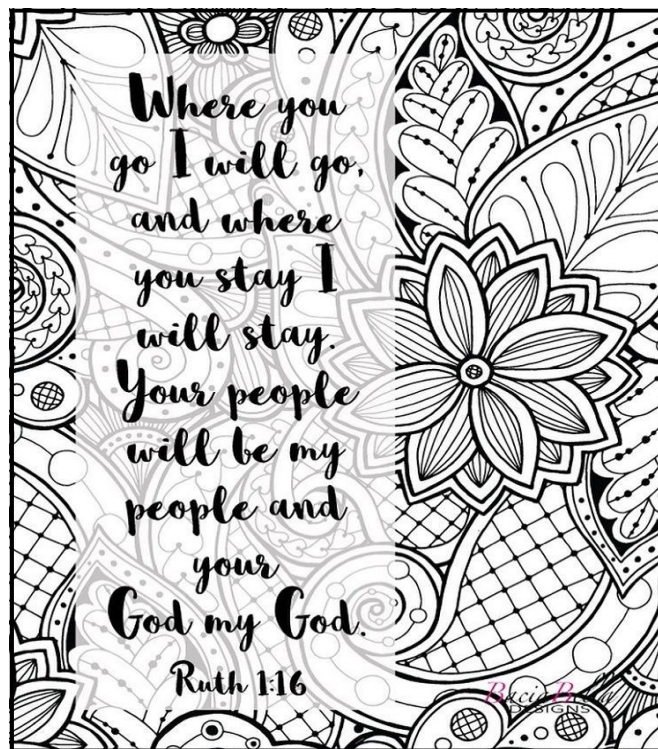 Where you
go I will go,
and where
you stay I
will stay.
Your people
will be my
people and
your
God my God.
Ruth 1:16
DESIGNS